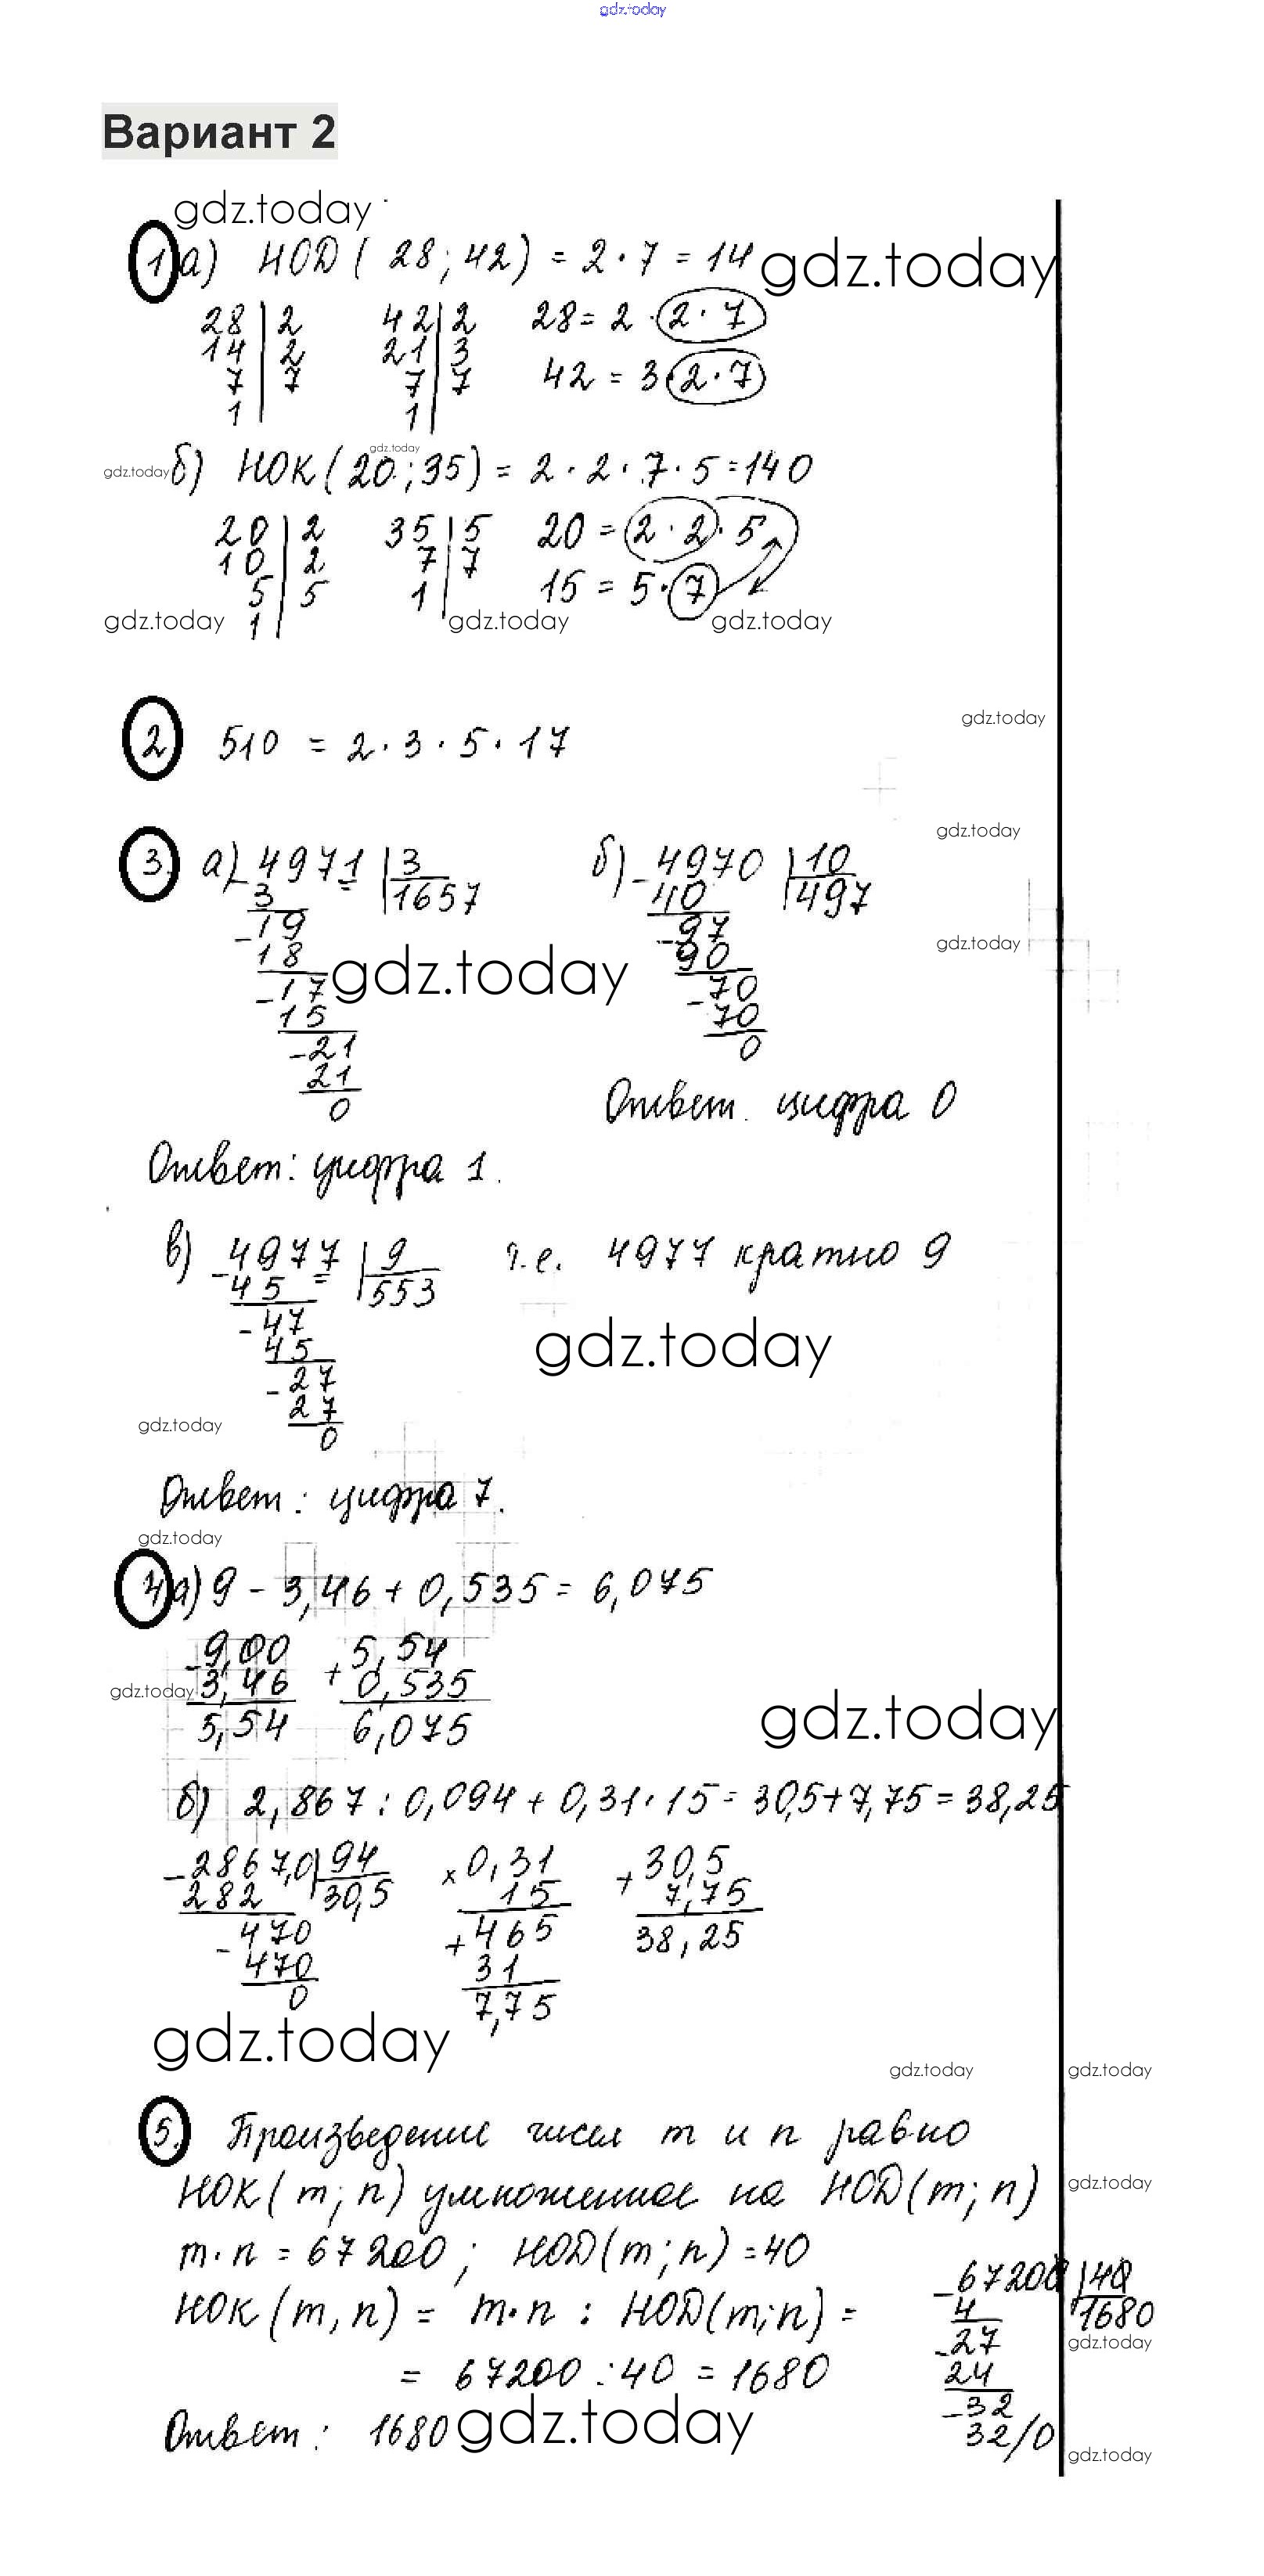 gdz.today
Вариант 2
gdz.today
1 а) НОД ( 28 ; 42 ) = 2 · 7 = 14 gdz.today
28 | 2 42 | 2 28 = 2 · 2 · 7
14 | 2 21 | 3 42 = 3 · 2 · 7
7 | 7 7 | 7
1 | 1 |
gdz.today
gdz.today б) НОК ( 20 ; 35 ) = 2 · 2 · 7 · 5 = 140
20 | 2 35 | 5 20 = 2 · 2 · 5
10 | 2 7 | 7 15 = 5 · 7
5 | 5 1 |
1 |
gdz.today gdz.today gdz.today
gdz.today
2 510 = 2 · 3 · 5 · 17
gdz.today
3. а) - 4971 | 3 б) - 4970 | 10
3 | 1657 40 | 497
- 19 - 97
18 90
gdz.today
gdz.today
- 17 - 70
15 70
- 21 0
21
0
Ответ. цифра 0
Ответ: цифра 1.
в) - 4977 | 9 т.е. 4977 кратно 9
45 | 553
- 47
45
gdz.today
- 27
27
gdz.today
0
Ответ: цифра 7.
gdz.today
4 а) 9 - 3,46 + 0,535 = 6,075
- 9,00 + 5,54
gdz.today 3,46 0,535
5,54 6,075
gdz.today
б) 2,867 : 0,094 + 0,31 · 15 = 30,5 + 7,75 = 38,25
- 2867,0 | 94 × 0,31 + 30,5
282 | 30,5 15 7,75
- 470 + 465 38,25
470 31
0 7,75
gdz.today
gdz.today gdz.today
5. Произведение чисел m и n равно
НОК ( m ; n ) умноженное на НОД ( m ; n )
gdz.today
m · n = 67200 ; НОД ( m ; n ) = 40
НОК ( m , n ) = m · n : НОД ( m ; n ) =
= 67200 : 40 = 1680
- 67200 | 40
4 | 1680
- 27
gdz.today
24
- 32
32 / 0
Ответ : 1680 gdz.today
gdz.today